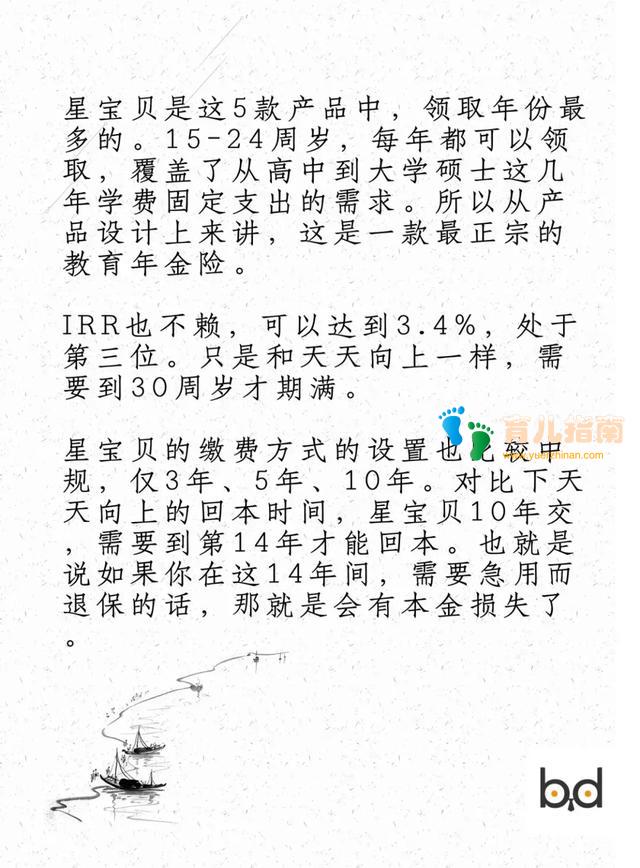 星宝贝是这5款产品中，领取年份最
多的。15-24周岁，每年都可以领
取，覆盖了从高中到大学硕士这几
年学费固定支出的需求。所以从产
品设计上来讲，这是一款最正宗的
教育年金险。
IRR也不赖，可以达到3.4%，处于
第三位。只是和天天向上一样，需
要到30周岁才期满。
育儿指南
www.yuerzhinan.com
星宝贝的缴费方式的设置也比较中
规，仅3年、5年、10年。对比下天
天向上的回本时间，星宝贝10年交
，需要到第14年才能回本。也就是
说如果你在这14年间，需要急用而
退保的话，那就是会有本金损失了
。
b,d